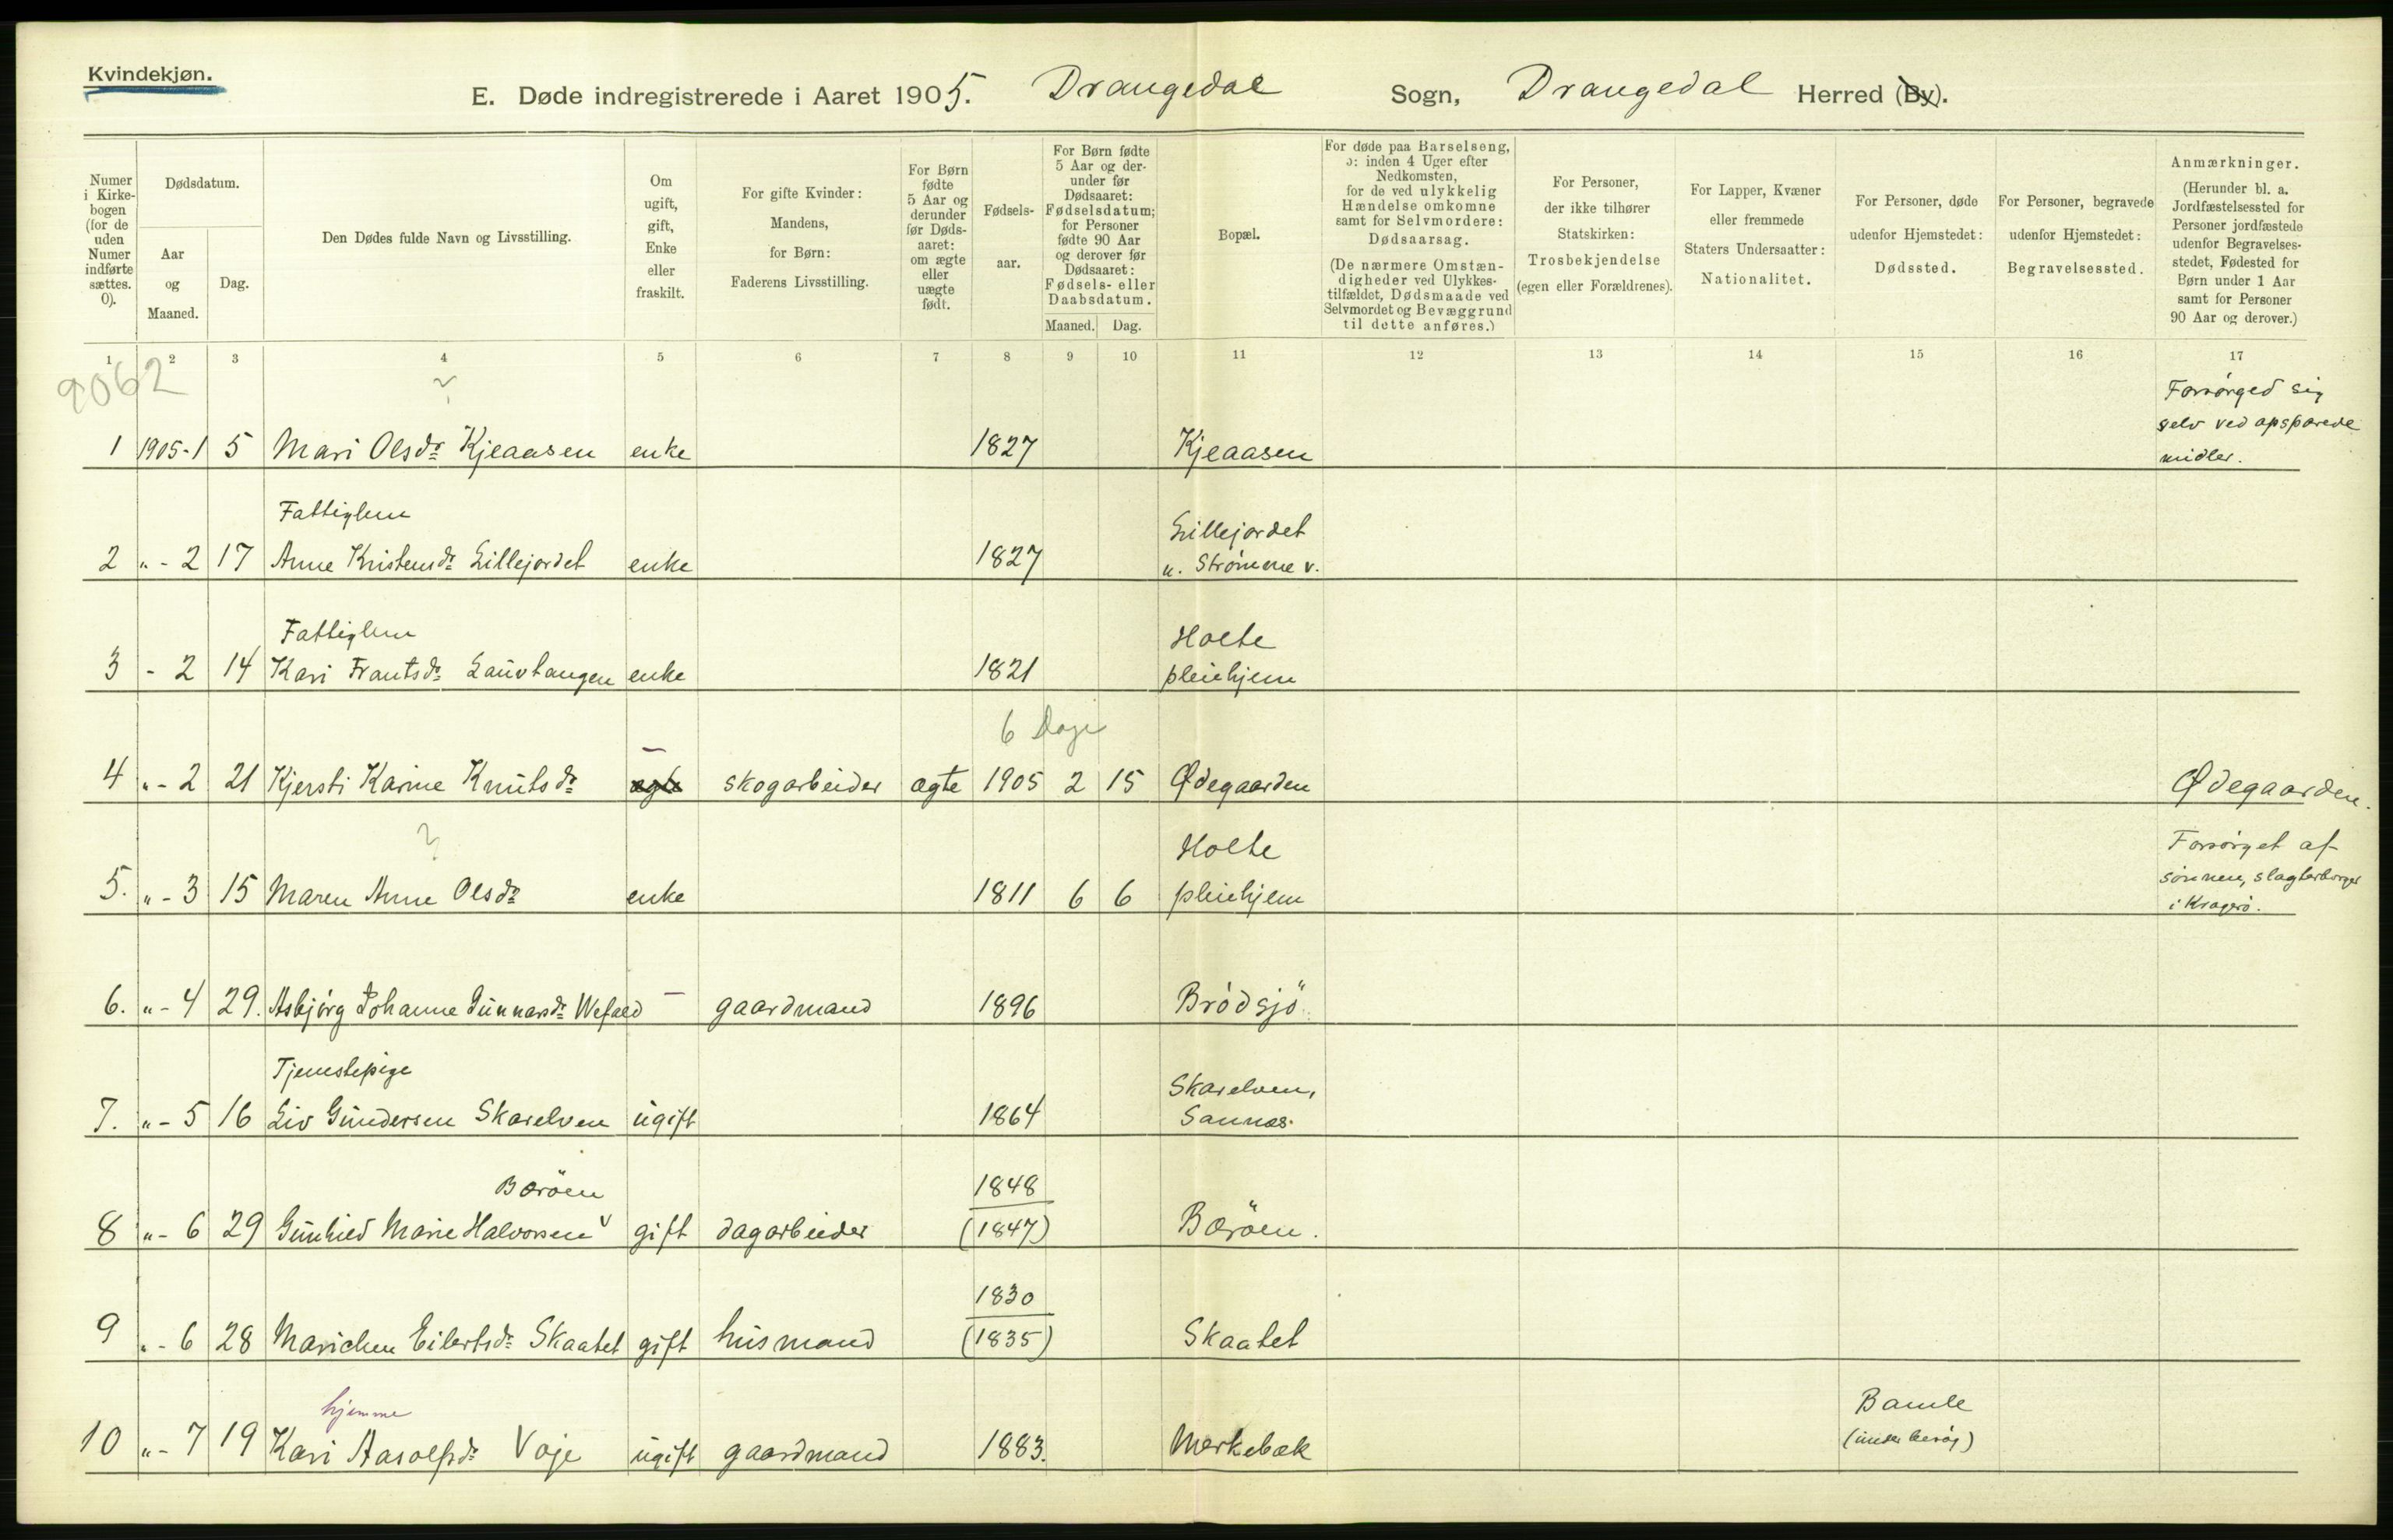 Kvindekjøn.
E. Døde indregistrerede i Aaret 1905. Drangedal Sogn, Drangedal Herred (By).
Numer i Kirkebogen (for de uden Numer indførte sættes. 0).
Dødsdatum.
Aar og Maaned.
Dag.
Den Dødes fulde Navn og Livsstilling.
Om ugift, gift, Enke eller fraskilt.
For gifte Kvinder: Mandens, for Børn: Faderens Livsstilling.
For Børn fødte 5 Aar og derunder før Dødsaaret: om ægte eller uægte født.
Fødselsaar.
For Børn fødte 5 Aar og derunder før Dødsaaret: Fødselsdatum; for Personer fødte 90 Aar og derover før Dødsaaret: Fødsels- eller Daabsdatum.
Maaned. Dag.
Bopæl.
For døde paa Barselseng, ɔ: inden 4 Uger efter Nedkomsten, for de ved ulykkelig Hændelse omkomne samt for Selvmordere: Dødsaarsag. (De nærmere Omstændigheder ved Ulykkestilfældet, Dødsmaade ved Selvmordet og Bevæggrund til dette anføres.)
For Personer, der ikke tilhører Statskirken: Trosbekjendelse (egen eller Forældrenes).
For Lapper, Kvæner eller fremmede Staters Undersaatter: Nationalitet.
For Personer, døde udenfor Hjemstedet: Dødssted.
For Personer, begravede udenfor Hjemstedet: Begravelsessted.
Anmærkninger. (Herunder bl. a. Jordfæstelsessted for Personer jordfæstede udenfor Begravelsesstedet, Fødested for Børn under 1 Aar samt for Personer 90 Aar og derover.)
1 2 3 4 5 6 7 8 9 10 11 12 13 14 15 16 17
9062
?
Forsørged sig
selv ved opsparede
midler.
1 1905-1 5 Mari Olsdr Kjeaasen enke 1827 Kjeaasen
Fattiglem
Lillejordet
2 " - 2 17 Anne Kristensdr Lillejordet enke 1827 u. Strømme v.
Fattiglem
Holte
3 - 2 14 Kari Frantsdr Lauvtangen enke 1821 pleiehjem
6 Dage
4 " - 2 21 Kjersti Karine Knutsdr – ægte skogarbeider ægte 1905 2 15 Ødegaarden Ødegaarden.
?
Holte
Forsørget af
sønnen, slagterborger
i Kragerø.
5. " - 3 15 Maren Anne Olsdr enke 1811 6 6 pleiehjem
6. " - 4 29. Asbjørg Johanne Gunnarsdr Wefald – gaardmand 1896 Brødsjø
Tjenestepige
Skarelven,
7. " - 5 16 Liv Gundersen Skarelven ugift 1864 Sannes.
Børøen
1848
8 " - 6 29 Gunhild Marie Halvorsen v gift dagarbeider (1847) Børøen.
1830
9 " - 6 28 Marichen Eilertsdr Skaatet gift husmand (1835) Skaatet
hjemme
Bamle
(under besøg)
10 " - 7 19 Kari Aasolfsdr Voje ugift gaardmand 1883. Merkebæk